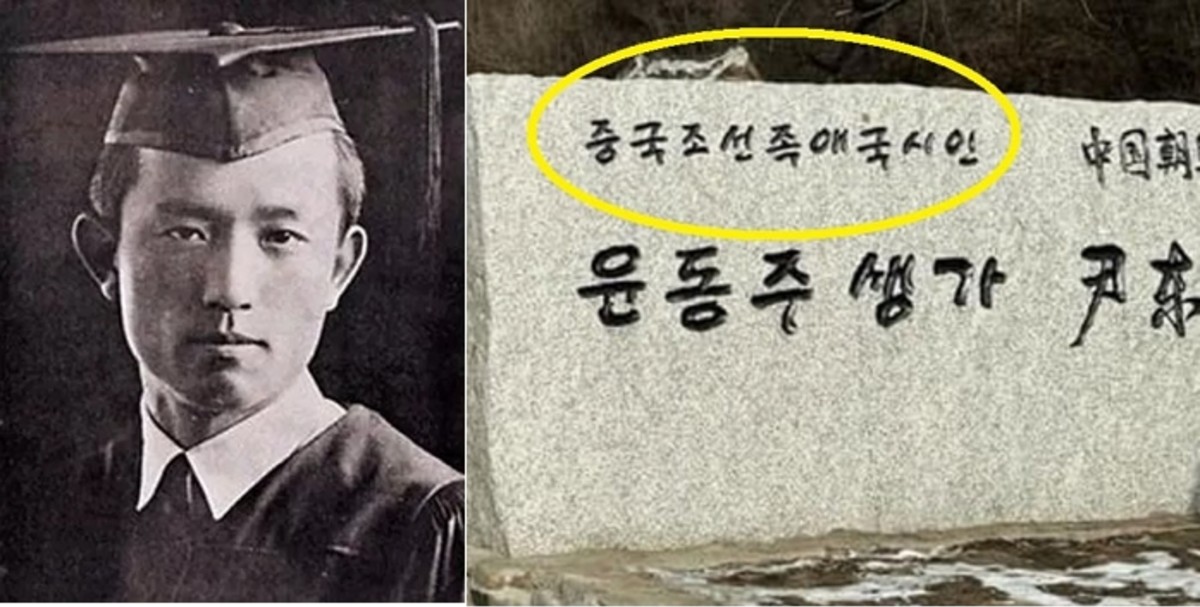 중국조선족애국시인 中国朝
윤동주 생가 尹东